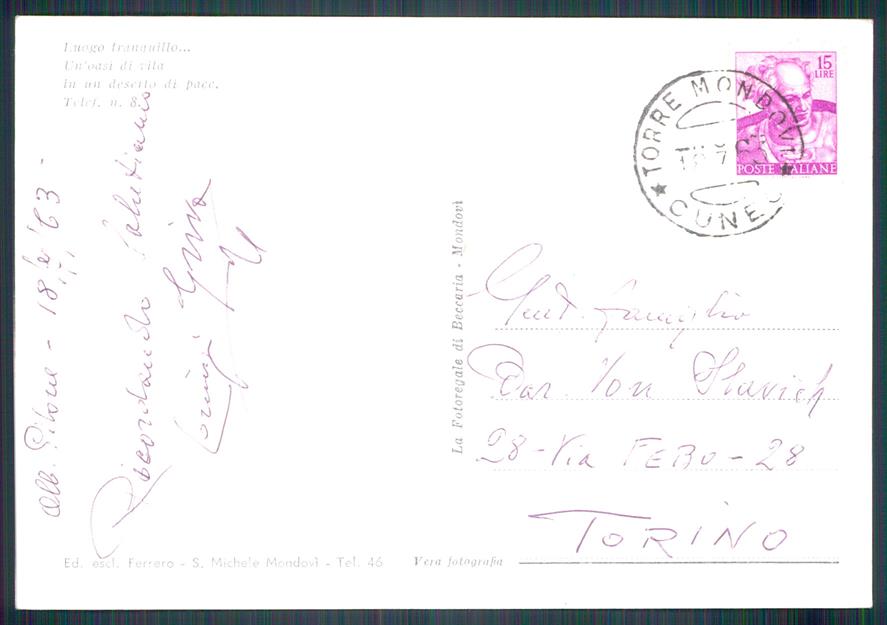 Luogo tranquillo...
Un'oasi di vita
In un deserto di pace.
Telef. n. 8.
Alb. - 18 63 -
Ricordando Salutiamo
15
LIRE
POSTE ITALIANE
TORRE MONDOVI
CUNEO
La Fotoregale di Beccaria - Mondovì
Gent. Famiglia
Bar. Von Slavich
28 - Via FEBO - 28
TORINO
Ed. escl. Ferrero - S. Michele Mondovì - Tel. 46
Vera fotografia